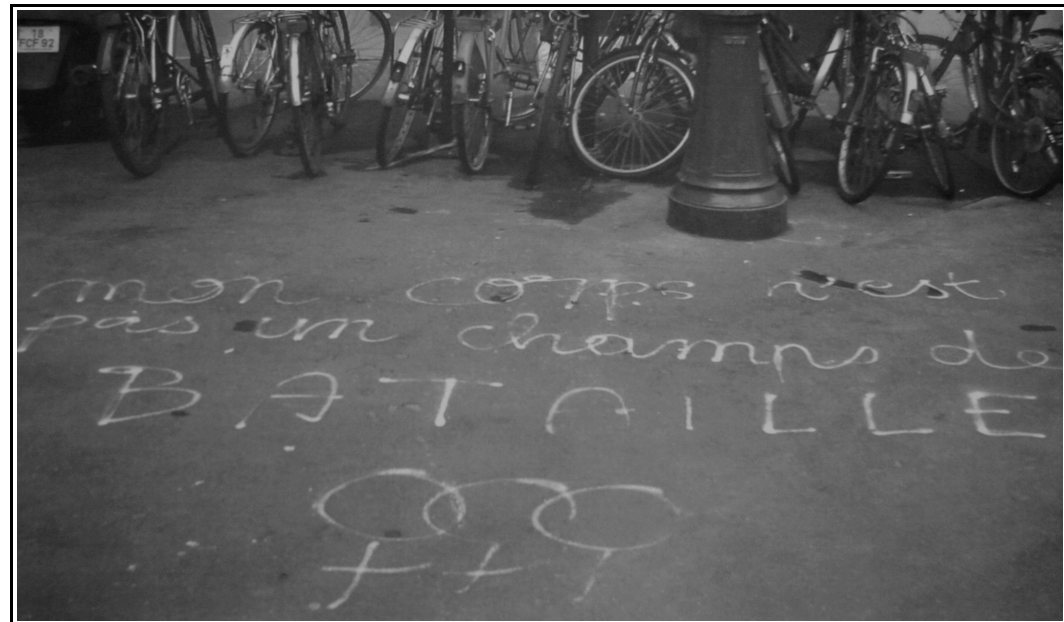 18
FCF 92
mon corps n'est
pas un champs de
BATAILLE